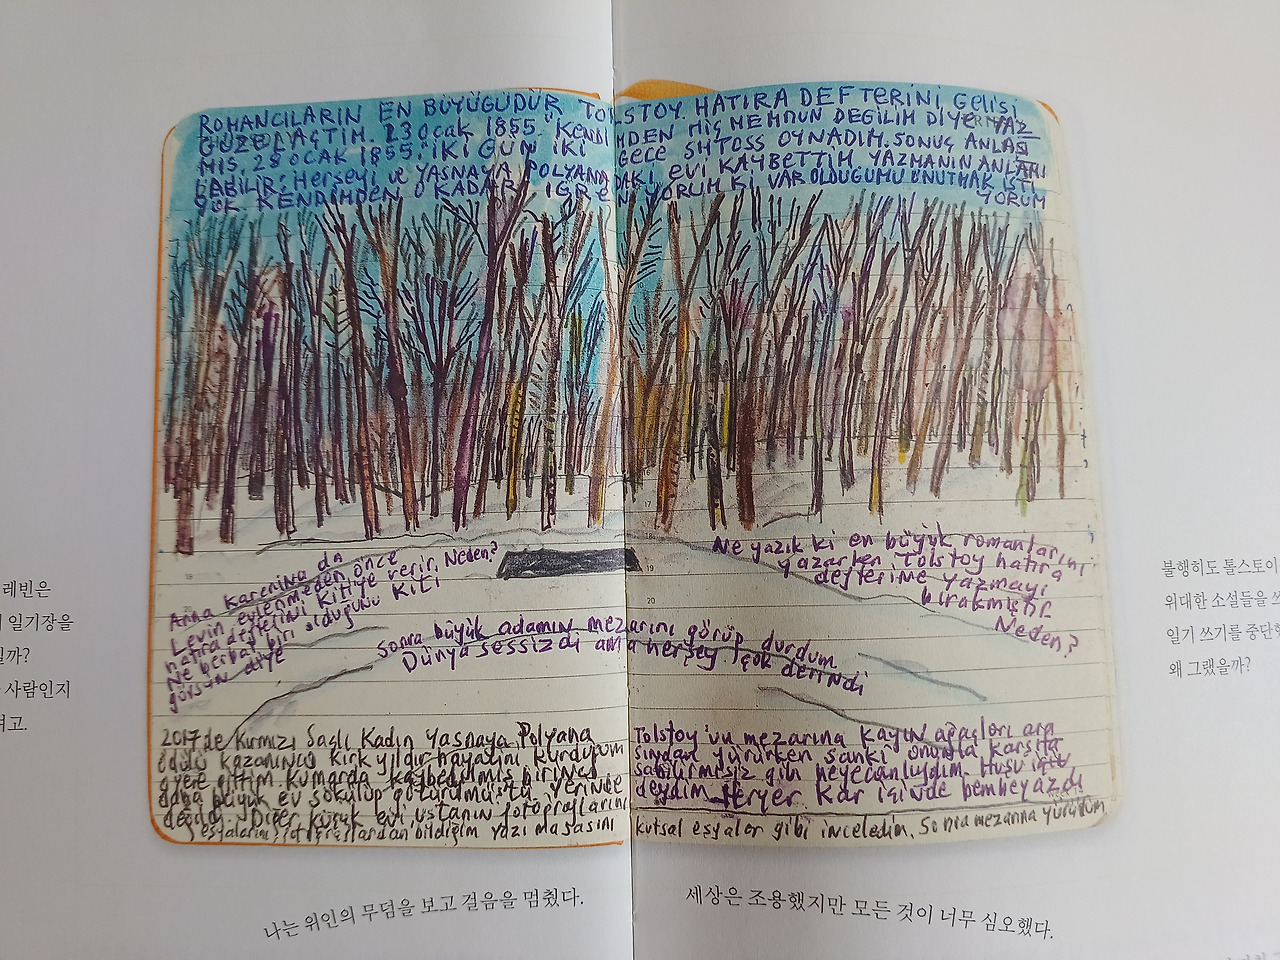 ROMANCILARIN EN BÜYÜĞÜDÜR TOLSTOY. HATIRA DEFTERİNİ GELİŞİ
GÜZEL AÇTIM. 23 Ocak 1855. KENDİMDEN HİÇ MEMNUN DEĞİLİM DİYE YAZ
MIŞ. 28 OCAK 1855: İKİ GÜN İKİ GECE SHTOSS OYNADIM. SONUÇ ANLAŞI
LABİLİR: HERŞEYİ ve YASNAYA POLYANADAKİ EVİ KAYBETTİM. YAZMANIN ANLAMI
YOK KENDİMDEN O KADAR İĞRENİYORUM Kİ VAR OLDUĞUMU UNUTMAK İSTİ
YORUM
16
17
18
19
20
Anna Karenina da
Levin evlenmeden önce
hatıra defterini Kitiye verir. Neden?
Ne berbat biri olduğunu Kiti
görsün diye
Ne yazık ki en büyük romanlarını
yazarken Tolstoy hatıra
defterine yazmayı
bırakmıştır.
Neden?
Sonra büyük adamın mezarını görüp durdum.
Dünya sessizdi ama herşey çok derindi
2017 de Kırmızı Saçlı Kadın Yasnaya Polyana
ödülü kazanınca kırk yıldır hayalini kurduğum
yere gittim. Kumarda kaybedilmiş birinci
daha büyük ev sökülüp götürülmüştü yerinde
değildi. Diğer küçük evi ustanın fotoğraflarını
eşyalarını, fotoğraflardan bildiğim yazı masasını
Tolstoy'un mezarına kayın ağaçları ara
sından yürürken sanki onunla karşıla
şabilirmişiz gibi heyecanlıydım. Huşu için
deydim. Heryer kar içinde bembeyazdı
kutsal eşyalar gibi inceledim. Sonra mezarına yürüdüm
레빈은
일기장을
까?
사람인지
고.
불행히도 톨스토이
위대한 소설들을 쓰
일기 쓰기를 중단
왜 그랬을까?
나는 위인의 무덤을 보고 걸음을 멈췄다.
세상은 조용했지만 모든 것이 너무 심오했다.